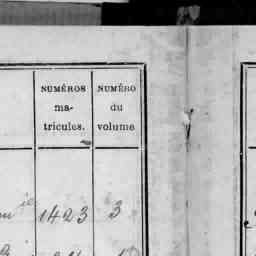 NUMÉROS
ma-
tricules.
NUMÉRO
du
volume
1423 3